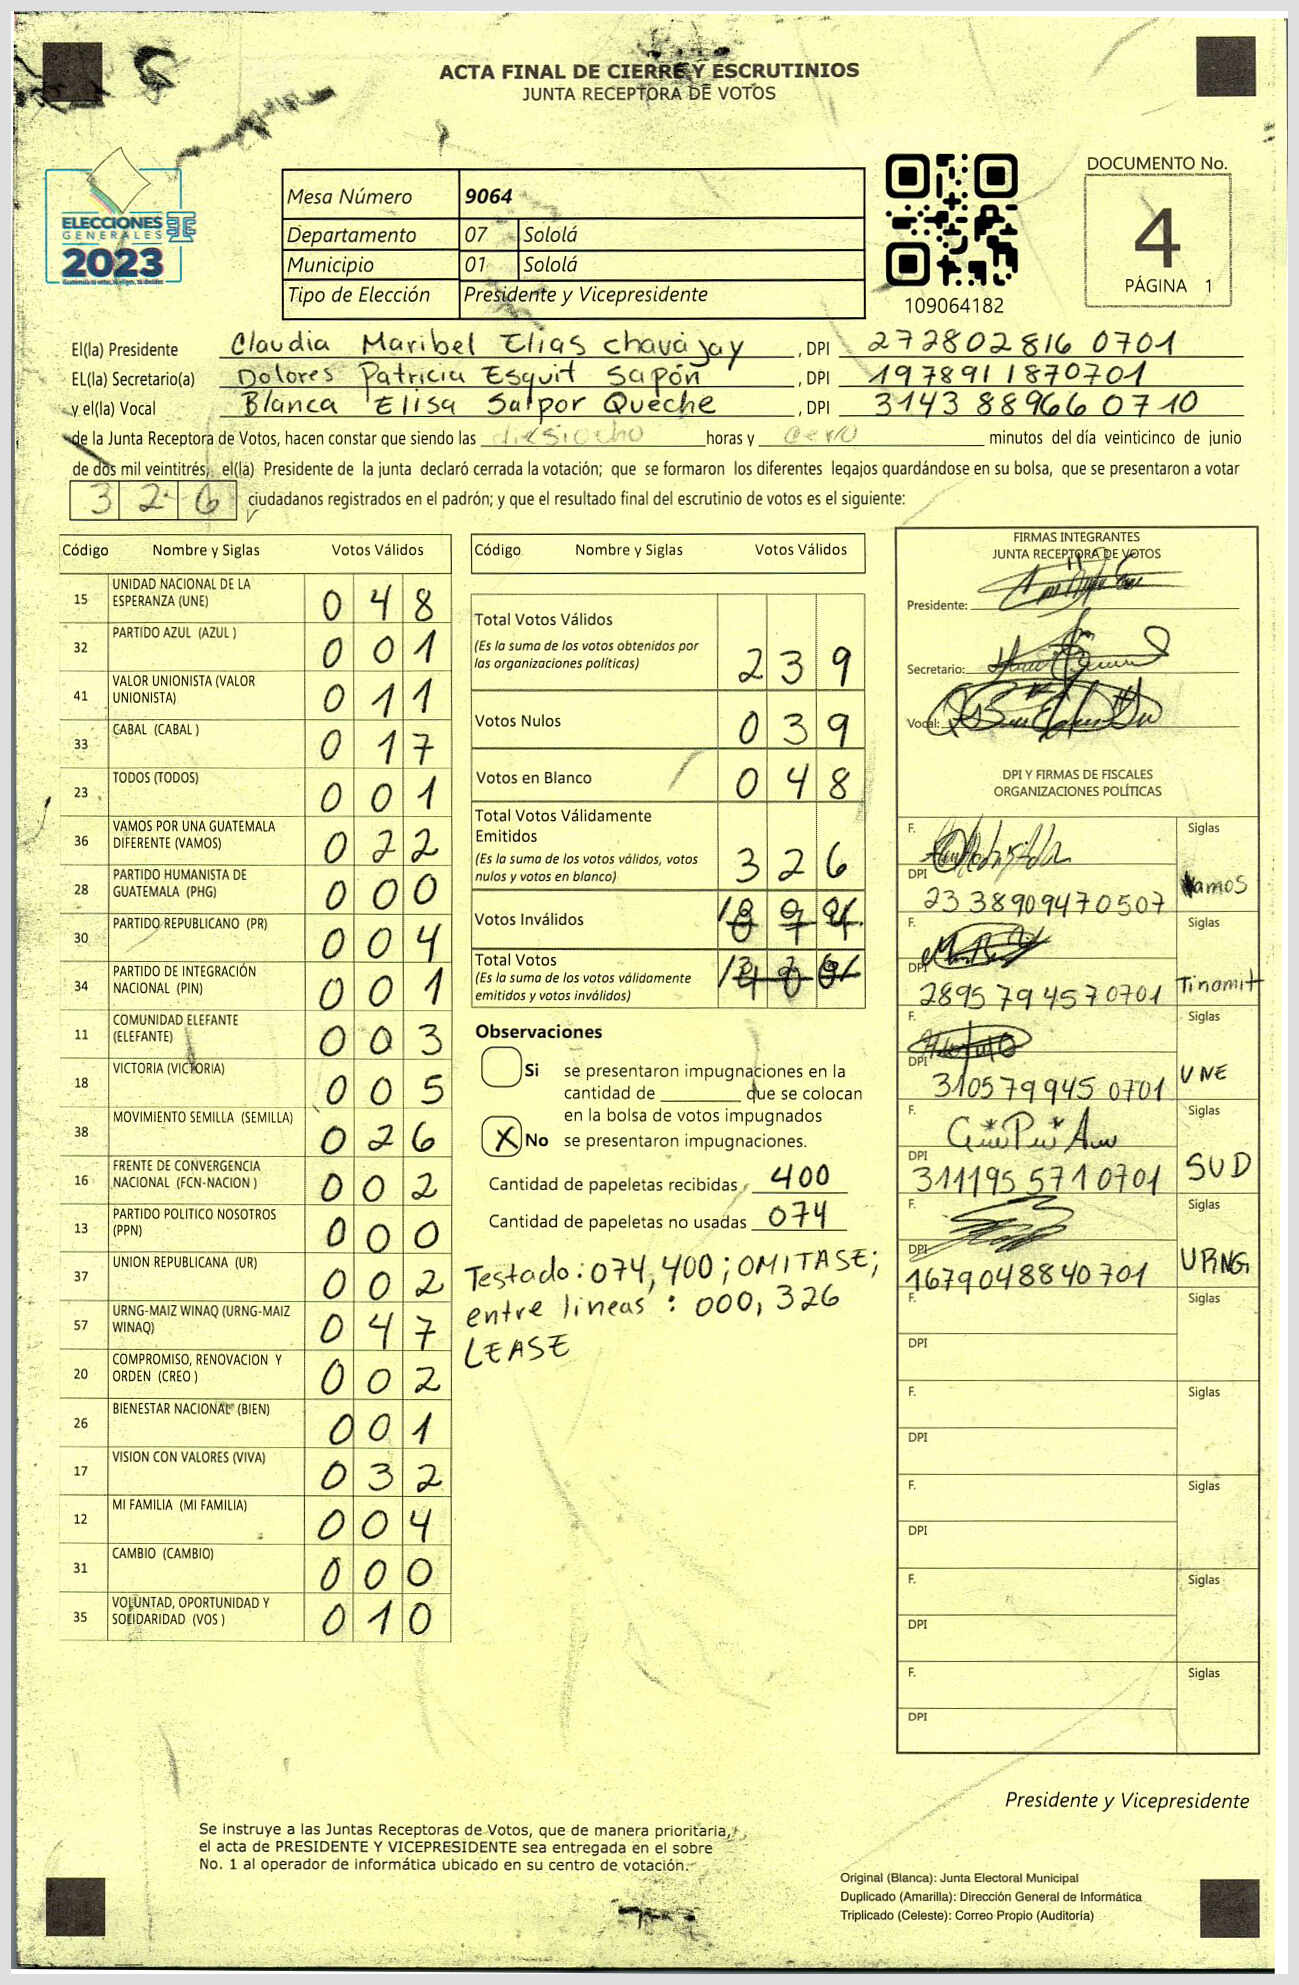 ACTA FINAL DE CIERRE Y ESCRUTINIOS
JUNTA RECEPTORA DE VOTOS
ELECCIONES
GENERALES
2023
Mesa Número 9064
Departamento 07 Sololá
Municipio 01 Sololá
Tipo de Elección Presidente y Vicepresidente
109064182
DOCUMENTO No.
4
PÁGINA 1
El(la) Presidente Claudia Maribel Elias chavajay , DPI 272802816 0701
EL(la) Secretario(a) Dolores Patricia Esquit Sapón , DPI 1978911870701
y el(la) Vocal Blanca Elisa Saipor Queche , DPI 3143 88966 0710
de la Junta Receptora de Votos, hacen constar que siendo las diesiocho horas y cero minutos del día veinticinco de junio
de dos mil veintitrés, el(la) Presidente de la junta declaró cerrada la votación; que se formaron los diferentes legajos quardándose en su bolsa, que se presentaron a votar
3 2 6 ciudadanos registrados en el padrón; y que el resultado final del escrutinio de votos es el siguiente:
Código Nombre y Siglas Votos Válidos
15 UNIDAD NACIONAL DE LA ESPERANZA (UNE) 0 4 8
32 PARTIDO AZUL (AZUL ) 0 0 1
41 VALOR UNIONISTA (VALOR UNIONISTA) 0 1 1
33 CABAL (CABAL ) 0 1 7
23 TODOS (TODOS) 0 0 1
36 VAMOS POR UNA GUATEMALA DIFERENTE (VAMOS) 0 2 2
28 PARTIDO HUMANISTA DE GUATEMALA (PHG) 0 0 0
30 PARTIDO REPUBLICANO (PR) 0 0 4
34 PARTIDO DE INTEGRACIÓN NACIONAL (PIN) 0 0 1
11 COMUNIDAD ELEFANTE (ELEFANTE) 0 0 3
18 VICTORIA (VICTORIA) 0 0 5
38 MOVIMIENTO SEMILLA (SEMILLA) 0 2 6
16 FRENTE DE CONVERGENCIA NACIONAL (FCN-NACION ) 0 0 2
13 PARTIDO POLITICO NOSOTROS (PPN) 0 0 0
37 UNION REPUBLICANA (UR) 0 0 2
57 URNG-MAIZ WINAQ (URNG-MAIZ WINAQ) 0 4 7
20 COMPROMISO, RENOVACION Y ORDEN (CREO ) 0 0 2
26 BIENESTAR NACIONAL (BIEN) 0 0 1
17 VISION CON VALORES (VIVA) 0 3 2
12 MI FAMILIA (MI FAMILIA) 0 0 4
31 CAMBIO (CAMBIO) 0 0 0
35 VOLUNTAD, OPORTUNIDAD Y SOLIDARIDAD (VOS ) 0 1 0
Código Nombre y Siglas Votos Válidos
Total Votos Válidos
(Es la suma de los votos obtenidos por
las organizaciones políticas) 2 3 9
Votos Nulos 0 3 9
Votos en Blanco 0 4 8
Total Votos Válidamente
Emitidos
(Es la suma de los votos válidos, votos
nulos y votos en blanco) 3 2 6
Votos Inválidos
Total Votos
(Es la suma de los votos válidamente
emitidos y votos inválidos)
Observaciones
Si se presentaron impugnaciones en la
cantidad de ________ que se colocan
en la bolsa de votos impugnados
X No se presentaron impugnaciones.
Cantidad de papeletas recibidas 400
Cantidad de papeletas no usadas 074
Testado: 074, 400; OMITASE;
entre lineas : 000, 326
LEASE
FIRMAS INTEGRANTES
JUNTA RECEPTORA DE VOTOS
Presidente:
Secretario:
Vocal:
DPI Y FIRMAS DE FISCALES
ORGANIZACIONES POLÍTICAS
F. Siglas
DPI 23 38909470507 Vamos
F. Siglas
DPI 2895 79 4570701 Tinamit
F. Siglas
DPI 310579945 0701 UNE
F. Siglas
DPI 311195 571 0701 SUD
F. Siglas
DPI 1679048840701 URNG
F. Siglas
DPI
F. Siglas
DPI
F. Siglas
DPI
F. Siglas
DPI
F. Siglas
DPI
Presidente y Vicepresidente
Se instruye a las Juntas Receptoras de Votos, que de manera prioritaria,
el acta de PRESIDENTE Y VICEPRESIDENTE sea entregada en el sobre
No. 1 al operador de informática ubicado en su centro de votación.
Original (Blanca): Junta Electoral Municipal
Duplicado (Amarilla): Dirección General de Informática
Triplicado (Celeste): Correo Propio (Auditoría)